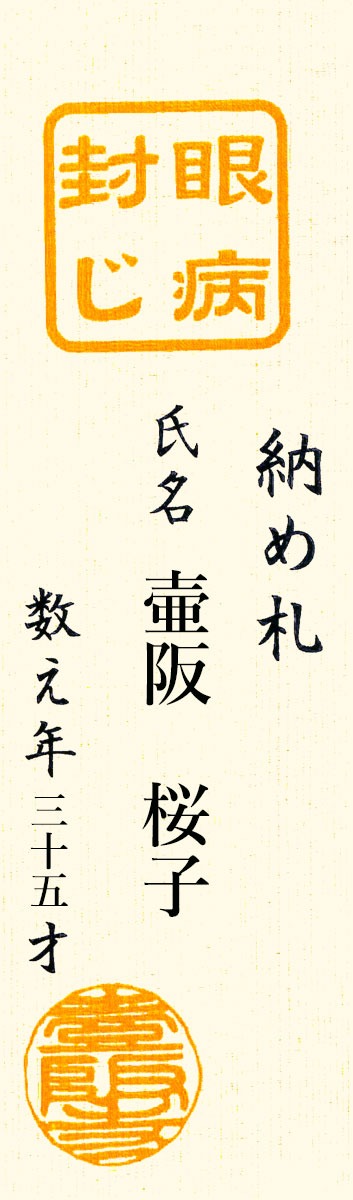 眼病
封じ
納め札
氏名 壷阪 桜子
数え年三十五才
壷阪寺